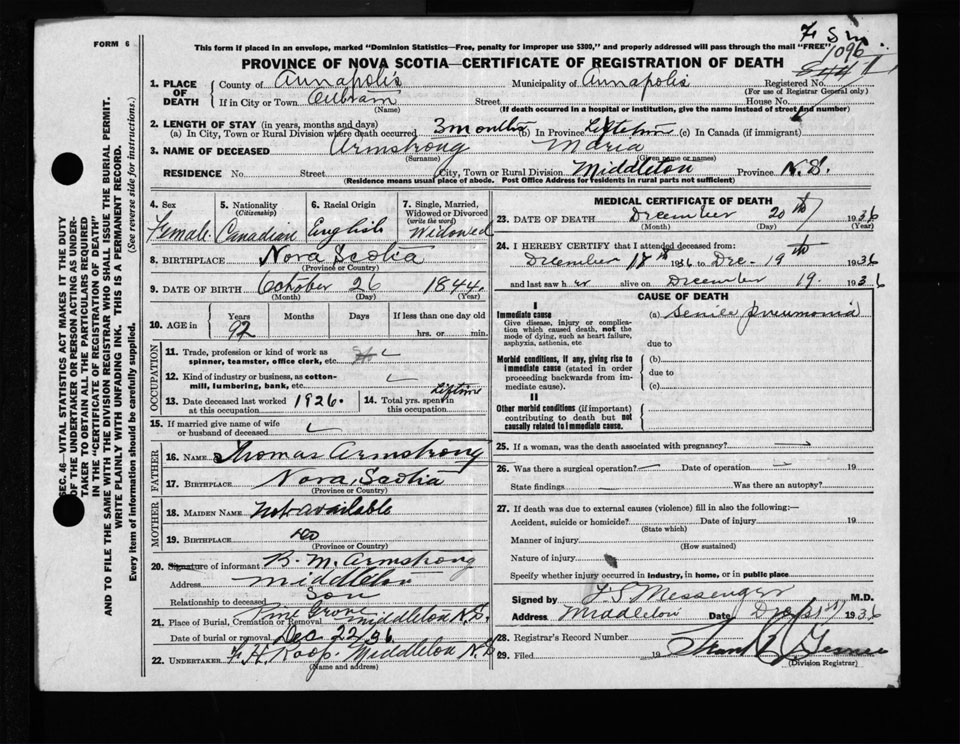 FORM 6
This form if placed in an envelope, marked "Dominion Statistics—Free, penalty for improper use $300," and properly addressed will pass through the mail "FREE"
PROVINCE OF NOVA SCOTIA—CERTIFICATE OF REGISTRATION OF DEATH 1096
1. PLACE OF DEATH County of Annapolis Municipality of Annapolis Registered No.
(For use of Registrar General only)
If in City or Town Street House No.
(Name) (If death occurred in a hospital or institution, give the name instead of street and number)
2. LENGTH OF STAY (in years, months and days)
(a) In City, Town or Rural Division where death occurred 3 months (b) In Province Lifetime (c) In Canada (if immigrant)
3. NAME OF DECEASED Armstrong Maria
(Surname) (Given name or names)
RESIDENCE No. Street City, Town or Rural Division Middleton Province N.S.
(Residence means usual place of abode. Post Office Address for residents in rural parts not sufficient)
SEC. 46—VITAL STATISTICS ACT MAKES IT THE DUTY
OF THE UNDERTAKER OR PERSON ACTING AS UNDERTAKER TO OBTAIN ALL THE PARTICULARS REQUIRED
IN THE "CERTIFICATE OF REGISTRATION OF DEATH"
AND TO FILE THE SAME WITH THE DIVISION REGISTRAR WHO SHALL ISSUE THE BURIAL PERMIT.
WRITE PLAINLY WITH UNFADING INK. THIS IS A PERMANENT RECORD.
Every item of information should be carefully supplied. (See reverse side for instructions.)
4. Sex 5. Nationality (Citizenship) 6. Racial Origin 7. Single, Married, Widowed or Divorced (write the word)
Female Canadian English Widowed
8. BIRTHPLACE Nova Scotia
(Province or Country)
9. DATE OF BIRTH October 26 1844
(Month) (Day) (Year)
10. AGE in Years Months Days If less than one day
92 hrs. or min.
OCCUPATION
11. Trade, profession or kind of work as spinner, teamster, office clerk, etc.
12. Kind of industry or business, as cotton-mill, lumbering, bank, etc.
13. Date deceased last worked at this occupation 1926. 14. Total yrs. spent in this occupation Lifetime
15. If married give name of wife or husband of deceased
FATHER
16. NAME Thomas Armstrong
17. BIRTHPLACE Nova Scotia
(Province or Country)
MOTHER
18. MAIDEN NAME Not available
19. BIRTHPLACE do
(Province or Country)
20. Signature of informant B. M. Armstrong
Address Middleton
Relationship to deceased Son
21. Place of Burial, Cremation or Removal Pine Grove Middleton N.S.
Date of burial or removal Dec. 22/36
22. UNDERTAKER F. H. Roop. Middleton N.S
(Name and address)
MEDICAL CERTIFICATE OF DEATH
23. DATE OF DEATH December 20th 1936
(Month) (Day) (Year)
24. I HEREBY CERTIFY that I attended deceased from:
December 18th 1936 to Dec. 19th 1936
and last saw her alive on December 19. 1936
CAUSE OF DEATH
I
Immediate cause (a) Senile pneumonia
Give disease, injury or complication which caused death, not the mode of dying, such as heart failure, asphyxia, asthenia, etc
due to
Morbid conditions, if any, giving rise to immediate cause (stated in order proceeding backwards from immediate cause).
(b)
due to
(c)
II
Other morbid conditions (if important) contributing to death but not causally related to immediate cause.
25. If a woman, was the death associated with pregnancy?
26. Was there a surgical operation? Date of operation 19
State findings Was there an autopsy?
27. If death was due to external causes (violence) fill in also the following:—
Accident, suicide or homicide? Date of injury 19
(State which)
Manner of injury
(How sustained)
Nature of injury
Specify whether injury occurred in industry, in home, or in public place
Signed by F S Messenger M.D.
Address Middleton Date Dec 21st 1936
28. Registrar's Record Number
29. Filed 19
(Division Registrar)